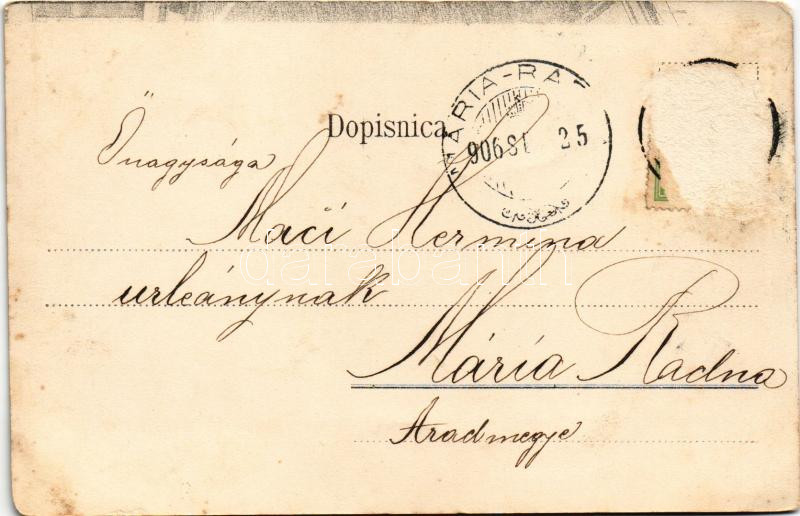 Dopisnica
MÁRIA-RA
906 25
Őnagysága
Maci Hermina
urleánynak
Mária Radna
Aradmegye
darabanth